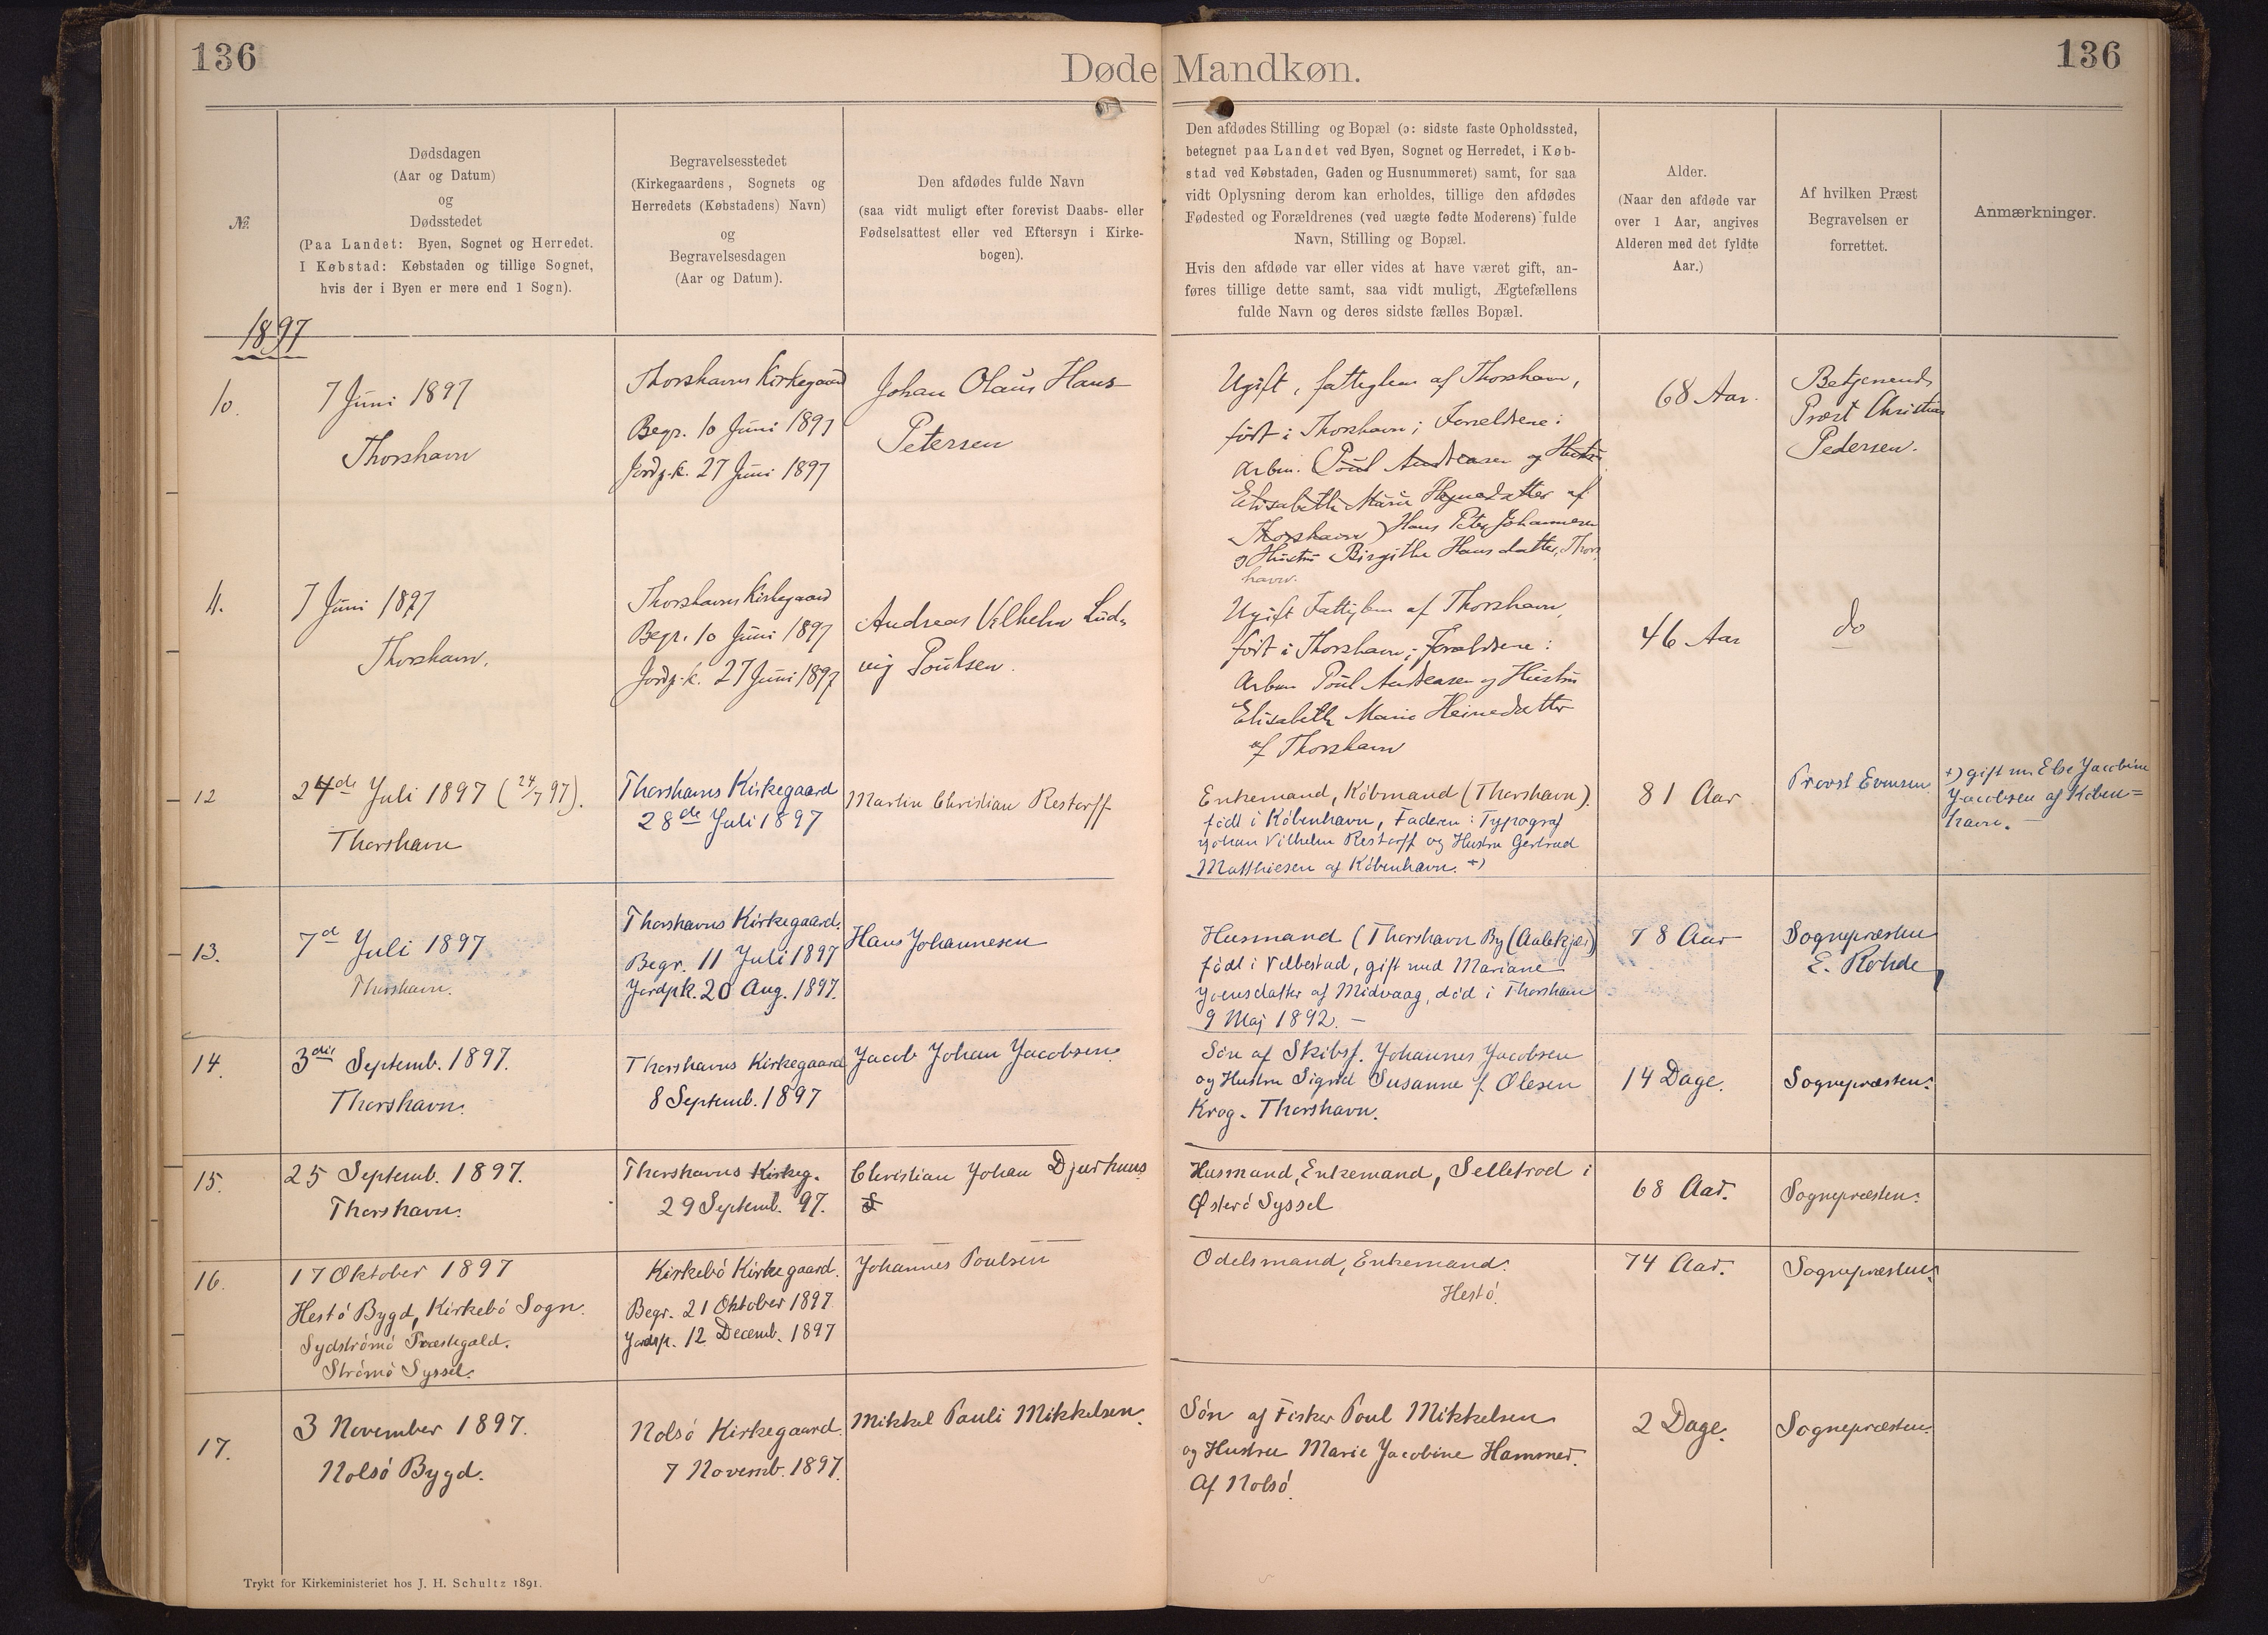 136
Døde Mandkøn.
136
№.
Dødsdagen
(Aar og Datum)
og
Dødsstedet
(Paa Landet: Byen, Sognet og Herredet.
I Købstad: Købstaden og tillige Sognet,
hvis der i Byen er mere end 1 Sogn).
Begravelsesstedet
(Kirkegaardens, Sognets og
Herredets (Købstadens) Navn)
og
Begravelsesdagen
(Aar og Datum).
Den afdødes fulde Navn
(saa vidt muligt efter forevist Daabs- eller
Fødselsattest eller ved Eftersyn i Kirke-
bogen).
Den afdødes Stilling og Bopæl (ɔ: sidste faste Opholdssted,
betegnet paa Landet ved Byen, Sognet og Herredet, i Køb-
stad ved Købstaden, Gaden og Husnummeret) samt, for saa
vidt Oplysning derom kan erholdes, tillige den afdødes
Fødested og Forældrenes (ved uægte fødte Moderens) fulde
Navn, Stilling og Bopæl.
Hvis den afdøde var eller vides at have været gift, an-
føres tillige dette samt, saa vidt muligt, Ægtefællens
fulde Navn og deres sidste fælles Bopæl.
Alder.
(Naar den afdøde var
over 1 Aar, angives
Alderen med det fyldte
Aar.)
Af hvilken Præst
Begravelsen er
forrettet.
Anmærkninger.
1897
10.
7 Juni 1897
Thorshavn
Thorshavns Kirkegaard
Begr. 10 Juni 1897
Jordp.k. 27 Juni 1897
Johan Olaus Hans
Petersen
Ugift, fattiglem af Thorshavn,
født i Thorshavn; Forældrene:
Arbm. (Poul Andreasen og Hustru
Elisabeth Marie Heinedatter af
Thorshavn) Hans Peter Johannesen
og Hustru Birgithe Hansdatter, Thors
havn.
68 Aar.
Betjenende
Præst Christian
Pedersen.
11.
7 Juni 1897
Thorshavn.
Thorshavns Kirkegaard
Begr. 10 Juni 1897
Jordp.k. 27 Juni 1897
Andreas Vilhelm Lud-
vig Poulsen.
Ugift Fattiglem af Thorshavn,
født i Thorshavn; Forældrene:
Arbm Poul Andreasen og Hustru
Elisabeth Marie Heinedatter
af Thorshavn
46 Aar
do
12
24de Juli 1897 (24/7 97).
Thorshavn
Thorshavns Kirkegaard
28de Juli 1897
Martin Christian Restorff
Enkemand, Købmand (Thorshavn).
født i København, Faderen: Typograf
Johan Vilhelm Restorff og Hustru Gertrud
Matthiesen af København. +)
81 Aar
Provst Evensen
+) gift m. Else Jacobine
Jacobsen af Köben=
havn. —
13.
7d Juli 1897
Thorshavn.
Thorshavns Kirkegaard.
Begr. 11 Juli 1897
Jordpk. 20 Aug. 1897.
Hans Johannesen
Husmand (Thorshavn By (Aalekjær)
født i Velbestad, gift med Mariane
Joensdatter af Midvaag, død i Thorshavn
9 Maj 1892. —
78 Aar
Sognepræsten
E. Rohde
14.
3die Septemb. 1897.
Thorshavn.
Thorshavns Kirkegaard
8 Septemb. 1897
Jacob Johan Jacobsen.
Søn af Skibsf. Johannes Jacobsen
og Hustru Sigrid Susanne f. Olesen
Krog. Thorshavn.
14 Dage.
Sognepræsten.
15.
25 Septemb. 1897.
Thorshavn.
Thorshavns Kirkeg.
29 Septemb. 97.
Christian Johan Djurhuus
Husmand, Enkemand, Selletrod i
Østerø Syssel
68 Aar.
Sognepræsten.
16.
17 Oktober 1897
Hestø Bygd, Kirkebø Sogn.
Sydstrømø Præstegæld.
Strømø Syssel.
Kirkebø Kirkegaard.
Begr. 21 Oktober 1897
Jordsp. 12 Decemb. 1897
Johannes Poulsen
Odelsmand, Enkemand.
Hestø.
74 Aar.
Sognepræsten.
17.
3 November 1897.
Nolsø Bygd.
Nolsø Kirkegaard.
7 Novemb. 1897.
Mikkel Pauli Mikkelsen.
Søn af Fisker Poul Mikkelsen
og Hustru Marie Jacobine Hammer.
Af Nolsø.
2 Dage.
Sognepræsten.
Trykt for Kirkeministeriet hos J. H. Schultz 1891.